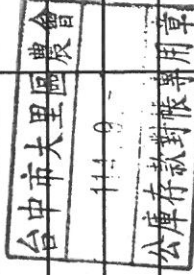 台中市大里區農會
111. 9.
公庫存款對帳專用章